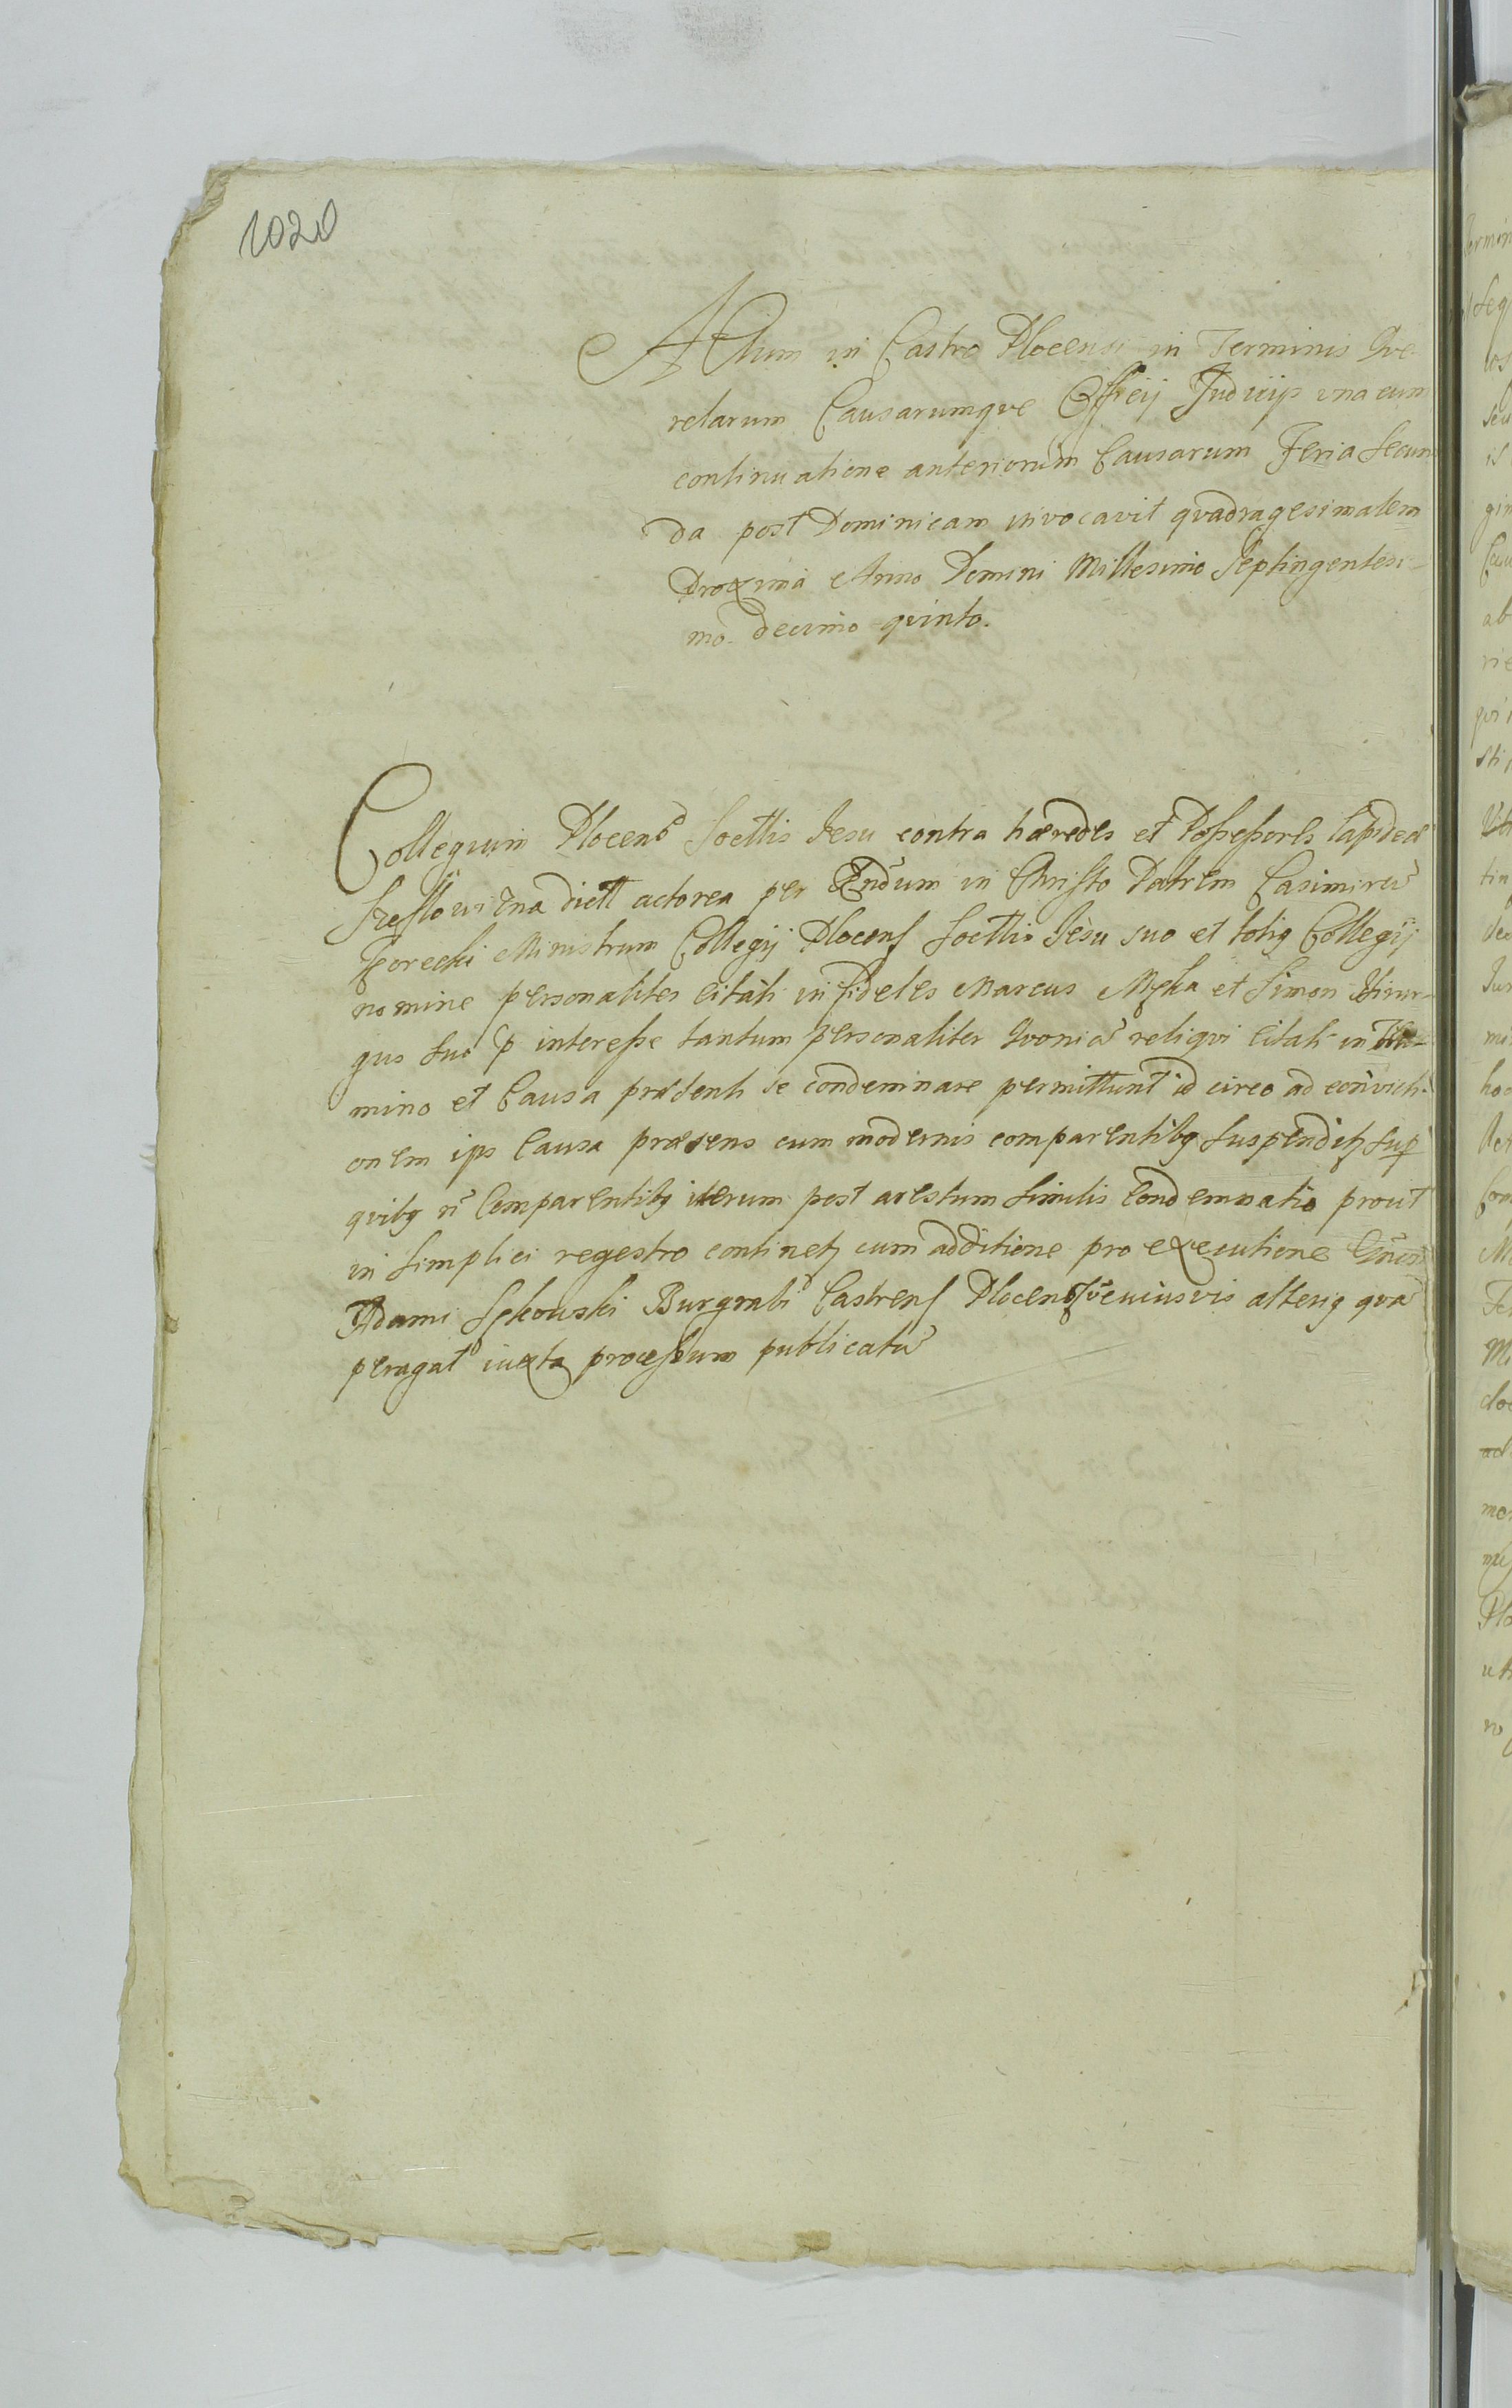 1020
Actum in Castro Plocensi in Terminis Qve-
relarum Causarumqve Officij Judicijs una cum
continuatione anteriorum Causarum Feria Secun
da post Dominicam invocavit qvadragesimalem
Proxima Anno Domini Millesimo Septingentesi-
mo decimo qvinto.
Collegium Plocens Soctttis Jesu contra hæredes et Possessores lapideæ
dictt actorea per Rndum in Christo Patrem Casimirũ
Gorecki Ministrum Collegij Plocens Soctttis Jesu suo et totig Collegij
nomine personaliter citati infideles Marcus et Simon Hirur-
gus suo p interesse tantum personaliter reliqvi citati in Ter-
mino et Causa præsenti se condemnare permittunt id circo ad convicti-
onem ips Causa præsens cum modernis comparentibg suspenditz sup
qvibg ñ Comparentibg iterum post arestum similis Condemnatio prout
in simplici regestro continetz cum additione pro executione Gñosi
Adami Burgrabi Castrens Plocens cuiusvis alterig qvã
peragat iuxta processum publicatũ